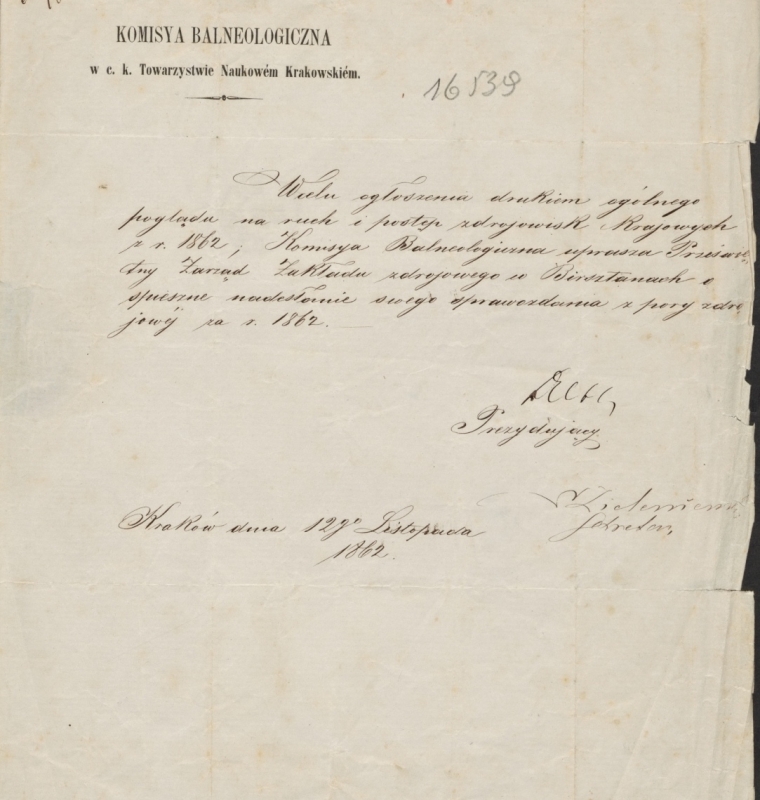 KOMISYA BALNEOLOGICZNA
w c. k. Towarzystwie Naukowém Krakowskiém.
16539
Wcelu ogłoszenia drukiem ogólnego
poglądu na ruch i postęp zdrojowisk Krajowych
z r. 1862; Komisya Balneologiczna uprasza Prześwie-
tny Zarząd Zakładu zdrojowego w Birsztanach o
spieszne nadesłanie swego sprawozdania z pory zdro-
jowéj za r. 1862.
Prezydujący
Kraków dnia 12go Listopada
1862.